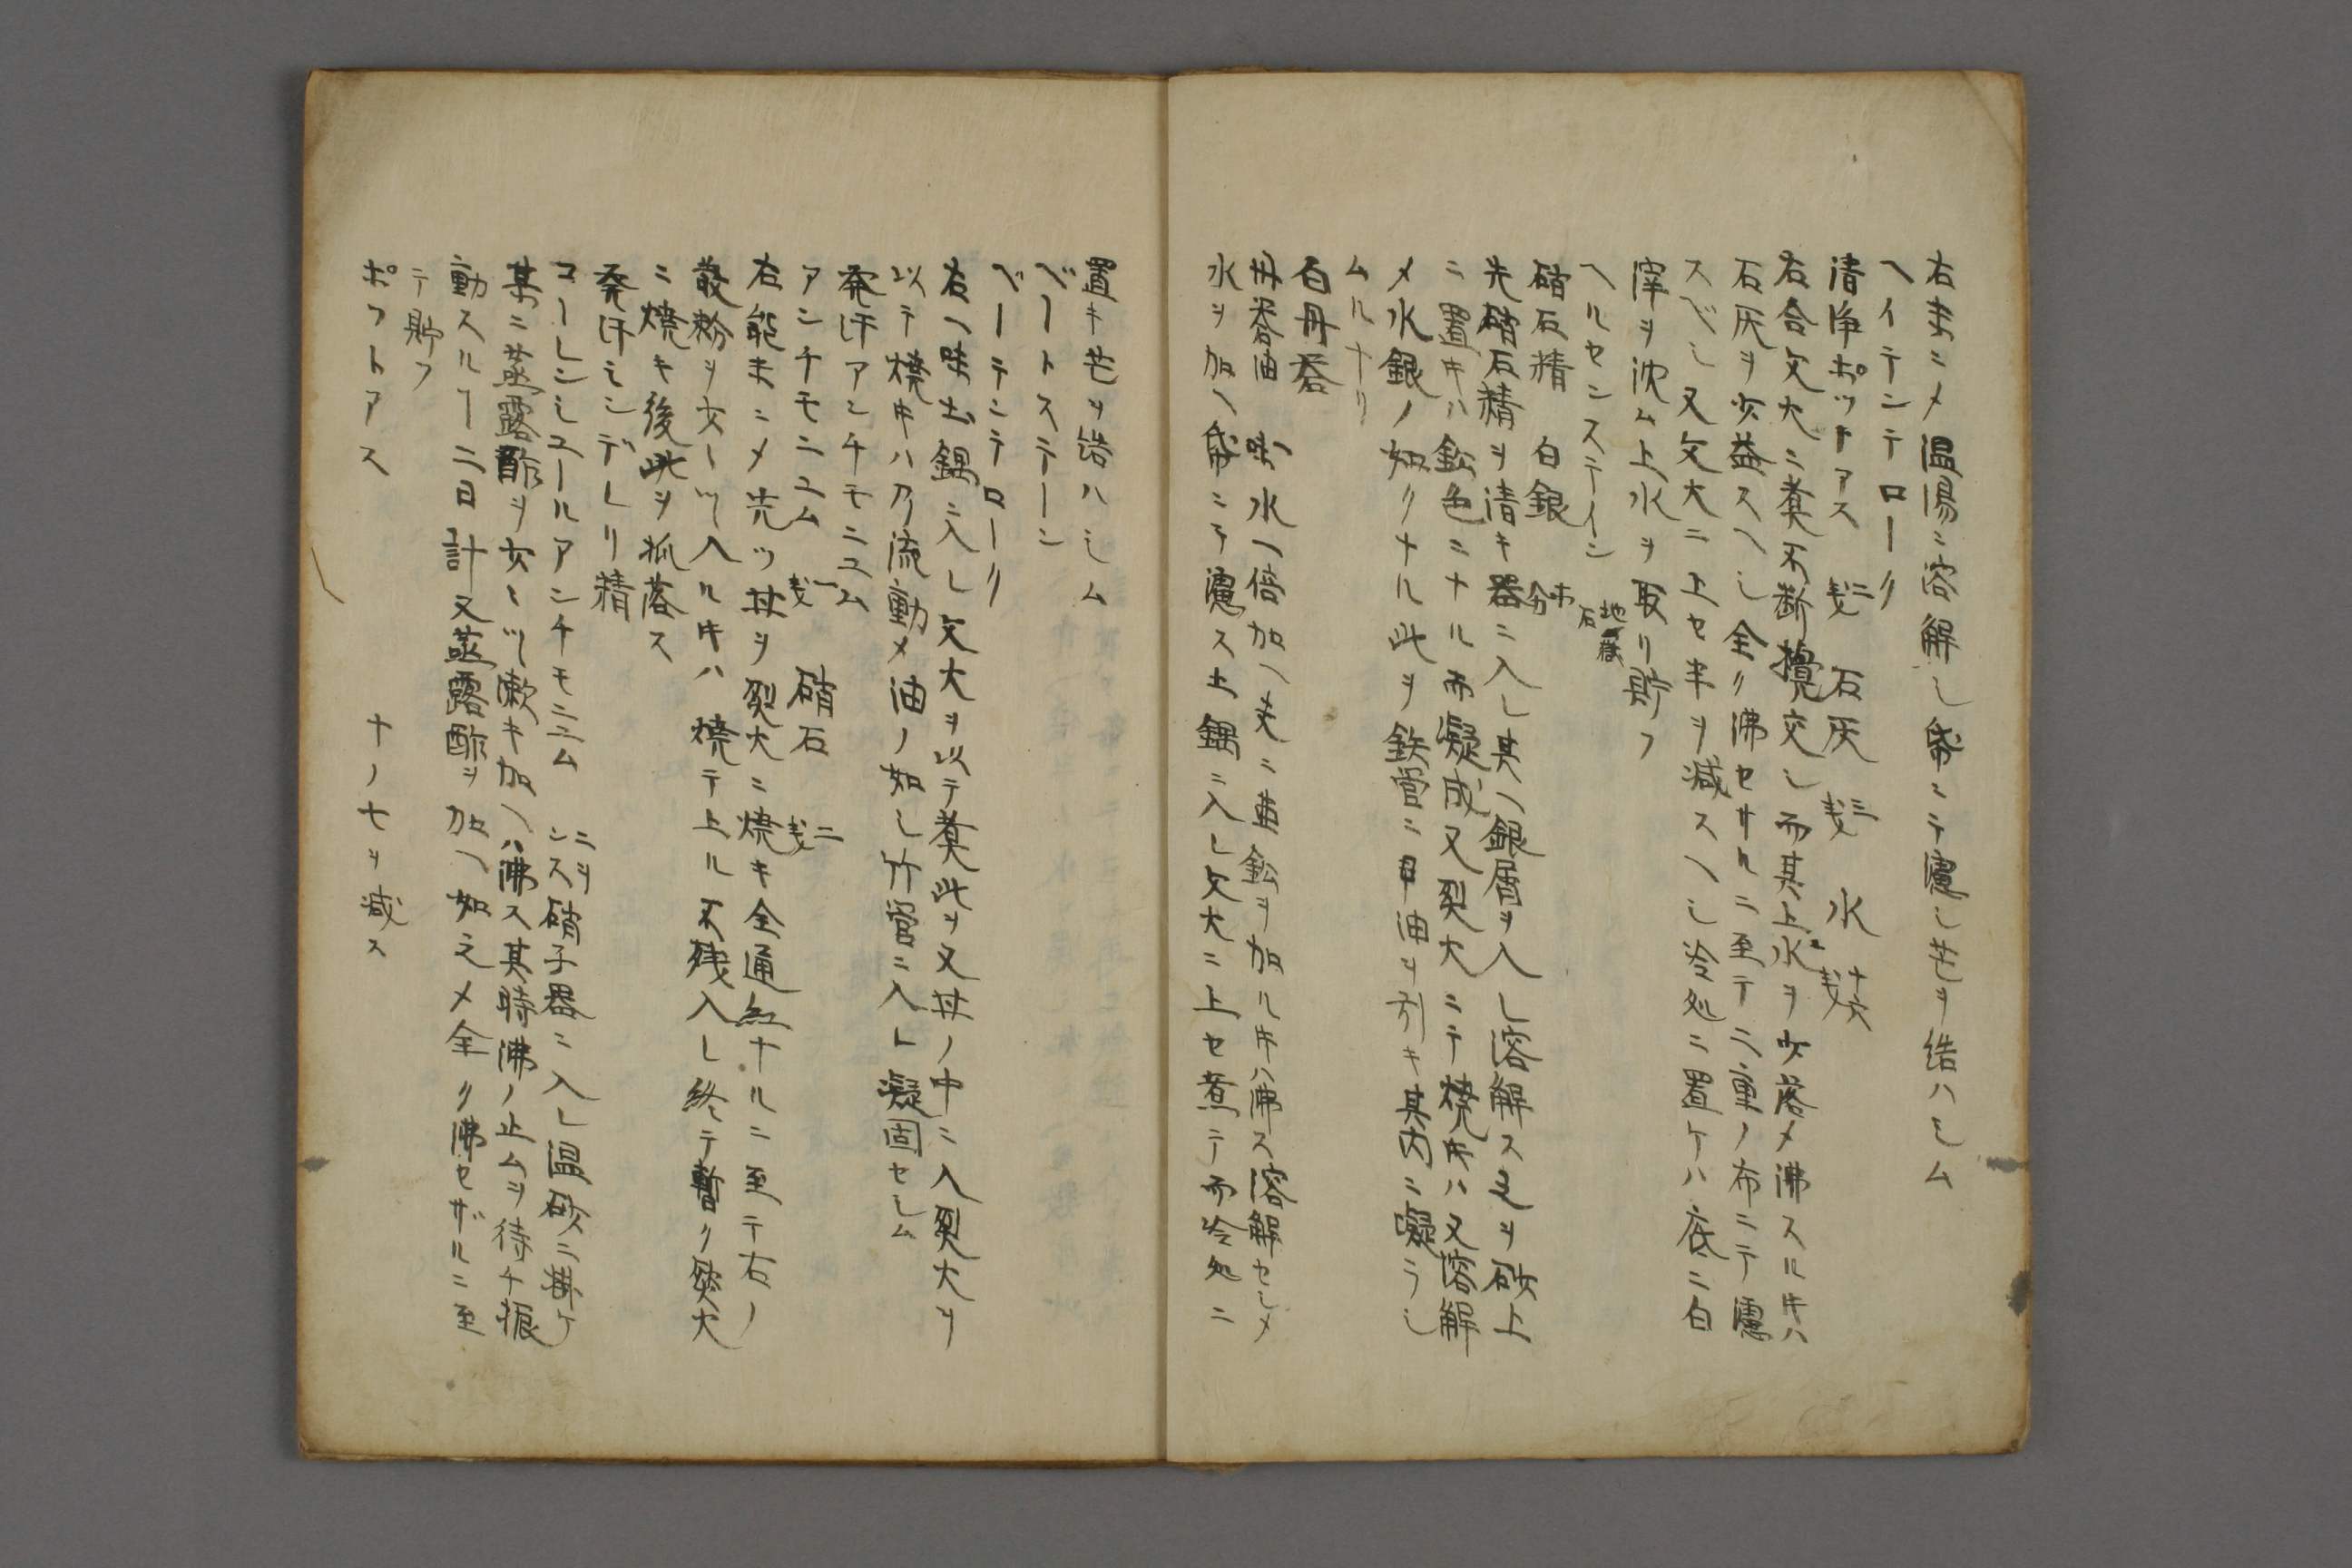 右末ニメ温湯ニ溶解し帋ニテ濾し芒ヲ結ハしム
ヘイテンテローク
清浄ポットアス 二戔 石灰 三戔 水 十六戔
右合文火ニ煑不断攪交し而其上水ヲ少落メ沸スルキハ
石灰ヲ少益スヘし全ク沸セサルニ至テ二重ノ布ニテ濾
スベし又文火ニ上セ半ヲ減スヘし冷処ニ置ケハ底ニ白
滓ヲ沈ム上水ヲ取リ貯フ
ヘルセンステイン 地獄石
硝石精 白銀 等分
先硝石精ヲ清キ器ニ入し其ヘ銀屑ヲ入し溶解ス之ヲ砂上
ニ置キハ鉛色ニナル而凝成又烈火ニテ焼キハ又溶解
メ水銀ノ如クナル此ヲ鉄管ニ油ヲ引キ其内ニ凝ラし
ムルナリ
白丹礬
丹礬油 水ヘ倍加ヘ夫ニ亜鉛ヲ加ルキハ沸ス溶解セしメ
水ヲ加ヘ帋ニテ濾ス土鍋ニ入し文火ニ上セ煮テ而冷処ニ
置キ芒ヲ結ハしム
ベートステーン
ベーテンテローク
右一味土鍋ニ入し文火ヲ以テ煑此ヲ又丼ノ中ニ入烈火ヲ
以テ焼キハ乃流動メ油ノ如し竹管ニ入レ凝固セしム
発汗アンチモニユム
アンチモニユム 一戔 硝石 二戔
右能末ニメ先ツ丼ヲ烈火ニ焼キ全通紅ナルニ至テ右ノ
散粉ヲ少しツヽ入ルキハ焼テ上ル不残入し終テ暫ク烈火
ニ焼キ後此ヲ孤落ス
発汗ミンデレリ精
コーレンシユールアンチモニム 二ヲンス 硝子器ニ入し温砂ニ掛ケ
其ニ蒸露酢ヲ少しツヽ漱キ加ヘハ沸ス其時沸ノ止ムヲ待チ振
動スルヿ二日計又蒸露酢ヲ加ヘ如之メ全ク沸セザルニ至
テ貯フ
ポツトアス 十ノ七ヲ減ス